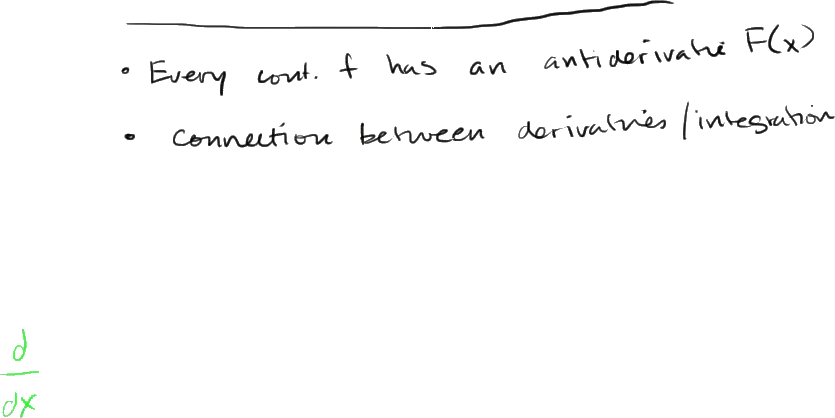 • Every cont. f has an antiderivative F(x)
• Connection between derivatives/integration
d
dx